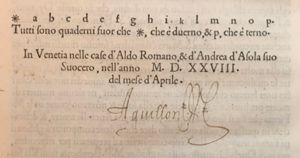 * a b c d e f g h i k l m n o p.
Tutti sono quaderni fuor che *, che è duerno, & p, che è terno.
In Venetia nelle case d'Aldo Romano, & d'Andrea d'Asola suo
Suocero, nell'anno M. D. XXVIII.
del mese d'Aprile.